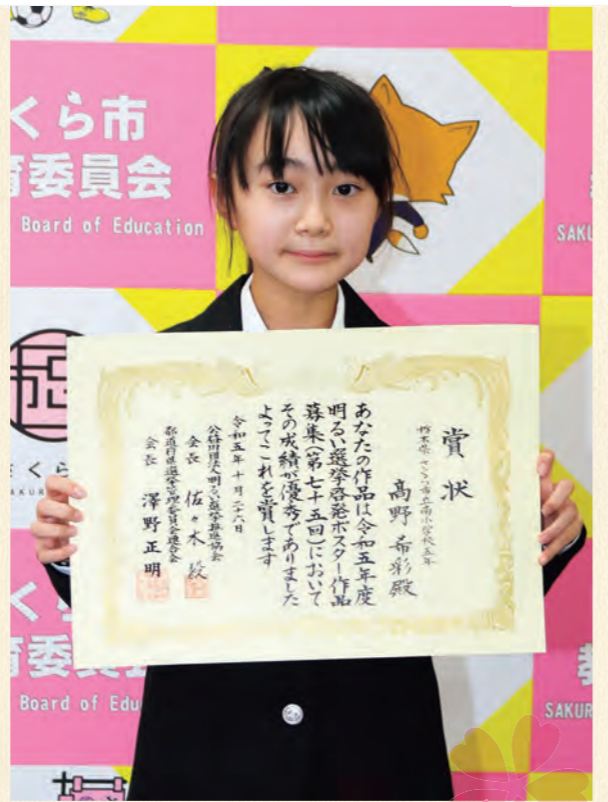 くら市
育委員会
Board of Education
SAKU
賞状
栃木県 さくら市立南小学校五年
髙野 希彩殿
あなたの作品は令和五年度
明るい選挙啓発ポスター作品
募集(第七十五回)において
その成績が優秀でありました
よってこれを賞します
令和五年十月二十六日
公益財団法人明るい選挙推進協会
会長 佐々木 毅
都道府県選挙管理委員会連合会
会長 澤野正明
くら
育委員会
Board of Edu
SAKUR